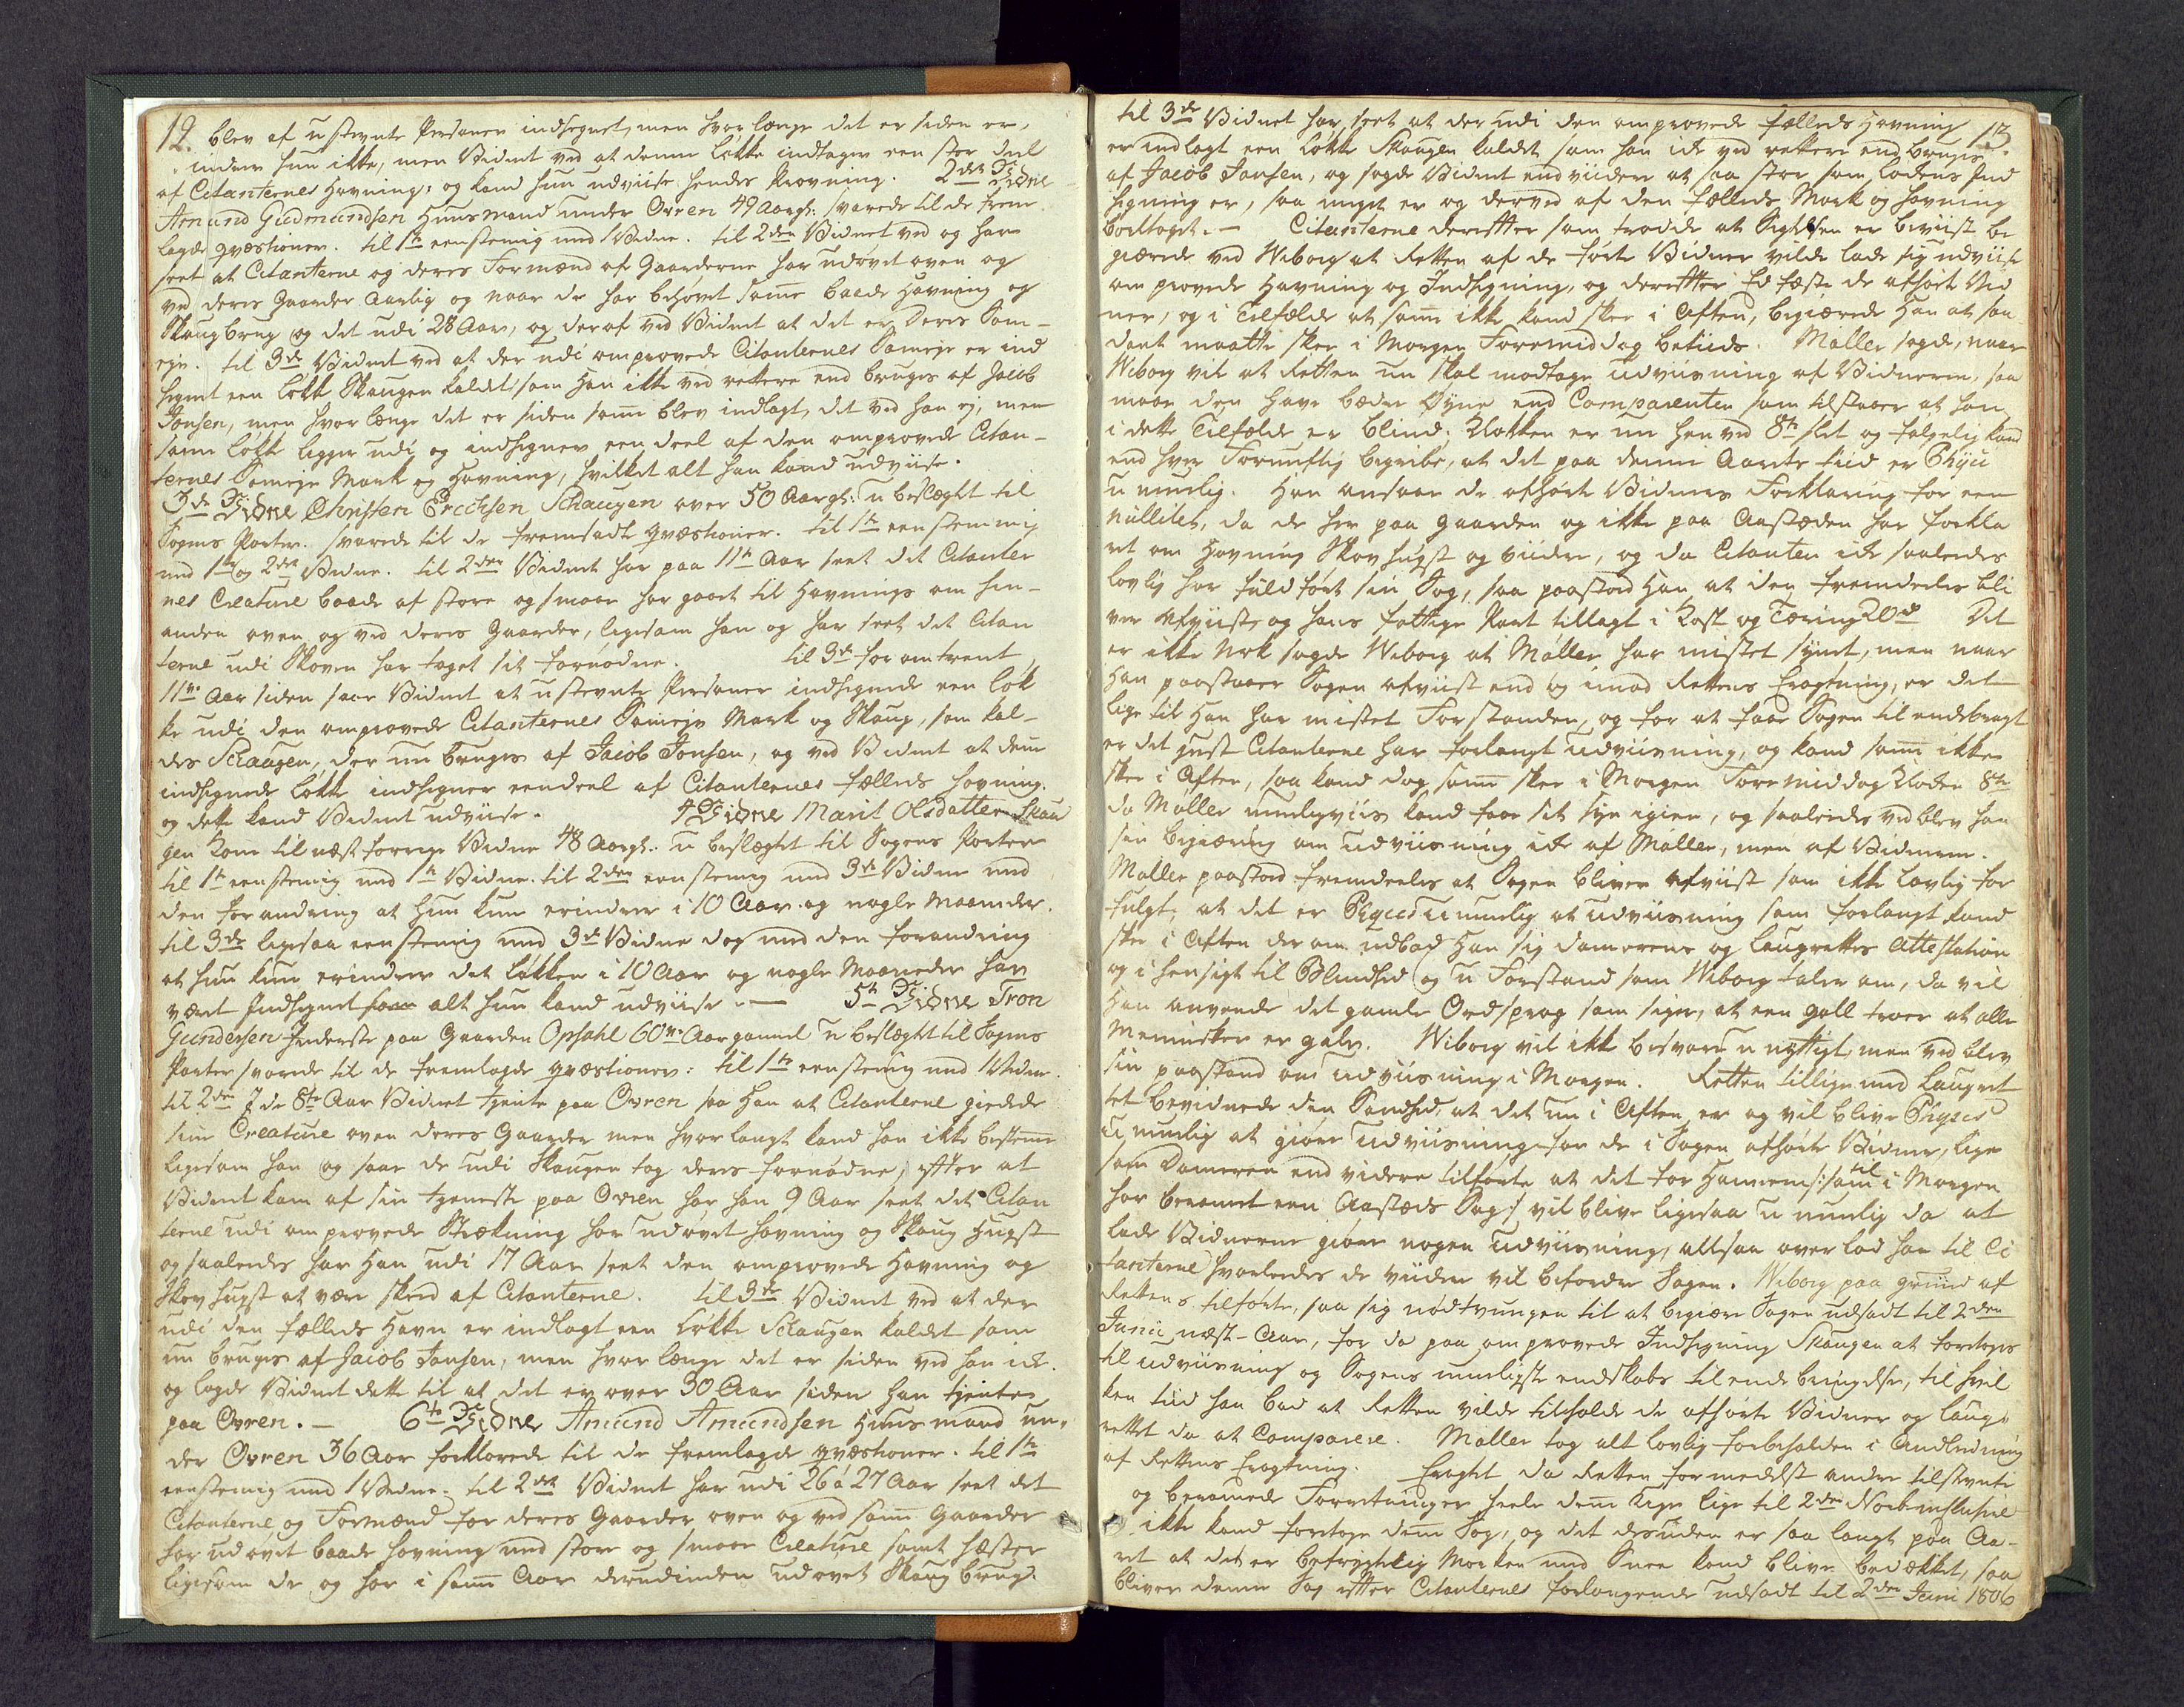 12.
blev af u stevnte Personer indhegnet, men hvor længe det er siden er,
indrer hun ikke, men Vidnet ved at denne Løkke indtager een stor deel
af Citanternes Havning, og kand hun udviise hendes Provning. 2det Vidne
Amund Gudmundsen Huusmand under Ovren 49 Aar gl: svarede til de frem-
lagde qvæstioner. til 1te eenstemig med 1 Vidne. til 2den Vidnet ved og har
seet at Citanterne og deres Formænd af Gaarderne har udøvet oven og
ved deres Gaarder aarlig og naar de har behøvet samme baade Havning og
Skaugbrug og det udi 28 Aar, og deraf ved Vidnet at det er deres Sam-
eje. til 3de Vidnet ved at der udi omprovede Citanternes Sameje er ind
hegnet een Løkke Skaugen kaldet, som han ikke ved rettere end bruges af Jacob
Jonsen, men hvor længe det er siden samme blev indlagt, det ved han ej, men
samme Løkke ligger udi og indhegner een deel af den omprovede Citan-
ternes Sameje Mark og Havning, hvilket alt han kand udviise.
3de Vidne Christen Erichsen Schaugen over 50 Aar gl: u beslægtet til
Sagens Parter. svarede til de fremsadte qvæstioner. til 1te eenstemmig
med 1te og 2det Vidne. til 2den Vidnet har paa 11te Aar seet det Citanter
nes Creature baade af store og smaae har gaaet til Havnings om hin-
anden oven og ved deres Gaarder, ligesom han og har seet det Citan
terne udi Skoven har taget sit fornødne. til 3de for omtrent
11ve Aar siden saae Vidnet at u stevnte Personer indhegnede een Løk
ke udi den omprovede Citanternes Sameje Mark og Skaug, som kal-
des Schaugen, der nu bruges af Jacob Jonsen, og ved Vidnet at denne
indhegnede Løkke indhegner eendeel af Citanternes fælleds Havning.
og dette kand Vidnet udviise. 4 Vidne Marit Olsdatter Skau
gen Kone til næst forrige Vidne 48 Aar gl: u beslægtet til Sagens Parter
til 1te eenstemig med 1te Vidne. til 2den eenstemig med 3de Vidne med
den forandring at hun kun erindrer i 10 Aar og nogle Maaneder.
til 3de ligesaa eenstemig med 3de Vidne dog med den forandring
at hun kun erindrer det Løkken i 10 Aar og nogle Maaneder har
været Indhegnet som alt hun kand udviise. — 5te Vidne Tron
Gundersen Inderste paa Gaarden Opsahl 60ve Aar gammel u beslægtet til Sagens
Parter svarede til de fremlagde qvæstioner: til 1te eenstemig med 1 Vidne.
til 2den I de 8te Aar Vidnet tjente paa Ovren saa han at Citanterne giedede
sine Creature oven deres Gaarder men hvor langt kand han ikke bestemme
ligesom han og saae de udi Skaugen tog deres fornødne, efter at
Vidnet kom af sin tjeneste paa Ovren har han 9 Aar seet det Citan
terne udi omprovede Strækning har udøvet havning og Skaug Hugst
og saaledes har han udi 17 Aar seet den omprovede Havning og
Skov hugst at være skeed af Citanterne. til 3de Vidnet ved at der
udi den fælleds Havn er indlagt een Løkke Schaugen kaldet som
nu bruges af Jacob Jonsen, men hvor længe det er siden ved han icke.
og lagde Vidnet dette til at det er over 30 Aar siden han tjente
paa Ovren. — 6te Vidne Amund Amundsen Huusmand un-
der Ovren 36 Aar forklarede til de fremlagde qvæstioner. til 1te
eenstemig med 1 Vidne. til 2det Vidnet har udi 26 á 27 Aar seet det
Citanterne og Formænd for deres Gaarder oven og ved samme Gaarder
har udøvet baade havning med store og smaae Creature samt hæster
ligesom de og har i samme Aar derudinden udøvet Skaug brug.
13.
til 3de Vidnet har seet at der udi den omprovede fælleds Havning
er indlagt een Løkke Skaugen kaldet som han icke ved rettere end bruges
af Jacob Jonsen, og sagde Vidnet end viidere at saa stor som Lødens Ind
hegning er, saa meget er og derved af den fælleds Mark og havning
borttaget. — Citanterne derefter som troede at Sigtelsen er beviist be
giærede ved Wiborg at Retten af de førte Vidner vilde lade sig udviise
omprovede Havning og Indhegning, og derefter Edfæste de afhørte Vid
ner, og i Tilfælde at samme ikke kand skee i Aften, begiærede han at saa
dant maatte skee i Morgen Formiddag betiids. Møller sagde, naar
Wiborg vil at Retten nu skal modtage udviisning af Vidnerne, saa
maae den have bædre Øyne end Comparenten som tilstaaer at han
i dette Tilfælde er blind. Klokken er nu hen ved 8te slet og følgelig kand
end hver Fornuftig begribe, at det paa denne Aarets tiid er Phyci
u muelig. Han ansaae de afhørte Vidners Forklaring for een
nullitet, da de her paa Gaarden og ikke paa Aastæden har forkla
ret om Havning Skovhugst og viidere, og da Citanten icke saaledes
lovlig har fuldført sin Sag, saa paastod han at den fremdeeles bli
ver Afviist, og hans fattige Part tillagt i Kost og Tæring 20 rd Det
er ikke Nok sagde Wiborg at Møller har mistet Synet, men naar
han paastaaer Sagen afviist end og imod Rettens Eragtning, er det
lige til han har mistet Forstanden, og for at faae Sagen til endebragt
er det just Citanterne har forlangt Udviisning, og kand samme ikke
skee i Aften, saa kand dog samme skee i Morgen Formiddag Kloken 8te
da Møller muligviis kand faae sit syn igien, og saaledes ved blev han
sin begiæring om Udviisning icke af Møller, men af Vidnerne.
Møller paastod fremdeeles at Sagen bliver afviist som ikke lovlig for
fulgt, at det er Phycisi umuelig at Udviisning som forlangt kand
skee i Aften derom udbad han sig Damerens og Laugrettes Attestation
og i hensigt til Blindhed og u Forstand som Wiborg taler om, da vil
han anvende det gamle Ordsprog som siger, at een gall troer at alle
Mennisker er gale. Wiborg vil ikke besvare u nyttigt, men ved blev
sin paastand om udviisning i Morgen. Retten tillige med Laugret
tet bevidnede den Sandhed, at det nu i Aften er og vil blive Physisi
umuelig at giøre Udviisning for de i Sagen afhørte Vidner, lige
som Dameren end videre tilførte at det for Hannem /: som til i Morgen
har berammet een Aastæds Sag :/ vil blive ligesaa u muelig da at
lade Vidnerne giøre nogen Udviisning, altsaa overlod han til Ci
tanterne hvorledes de viidere vil befordre Sagen. Wiborg paa grund af
Rettens tilførte, saa sig nødtvungen til at begiære Sagen udsadt til 2den
Junii næst Aar, for da paa omprovede Indhegning Skaugen at foretages
til Udviisning og Sagens mueligste endskabs til ende bringelse, til hvil
ken tiid han bad at Retten vilde tilholde de afhørte Vidner og Laug-
rettet da at Comparere. Møller tog alt lovlig forbeholden i Anledning
af Rettens Eragtning. Eragtet da Retten formedelst andre tilstevnte
og berammede Forretninger heele denne Uge lige til 2den Novbr inclusive
ikke kand foretage denne Sag, og det desuden er saa langt paa Aa-
ret at det er befrygtelig Marken med Snee kand blive bedækket, saa
bliver denne Sag efter Citanternes forlangende udsadt til 2den Juni 1806